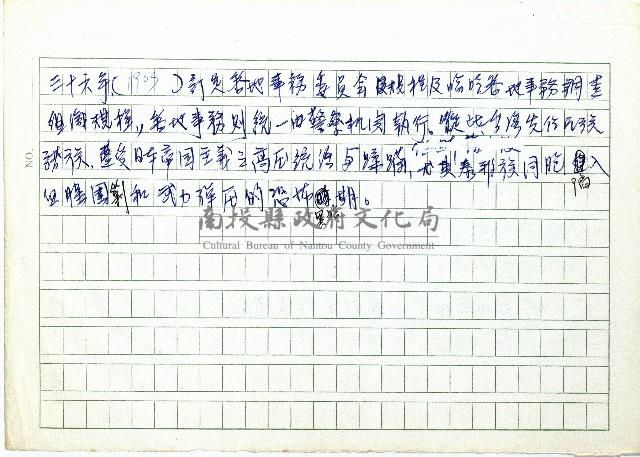 三十六年(1903)訂定蕃地事務委員会規程及臨时蕃地事務調查
組織規程,蕃地事務則統一由警察机関執行。從此台湾先住民族
諸族,蒙受日本帝国主義之高压統治与蹂躪,尤其泰雅族同胞陷入
包圍剿和武力弹压的恐怖期。
NO.
南投縣政府文化局
Cultural Bureau of Nantou County Government